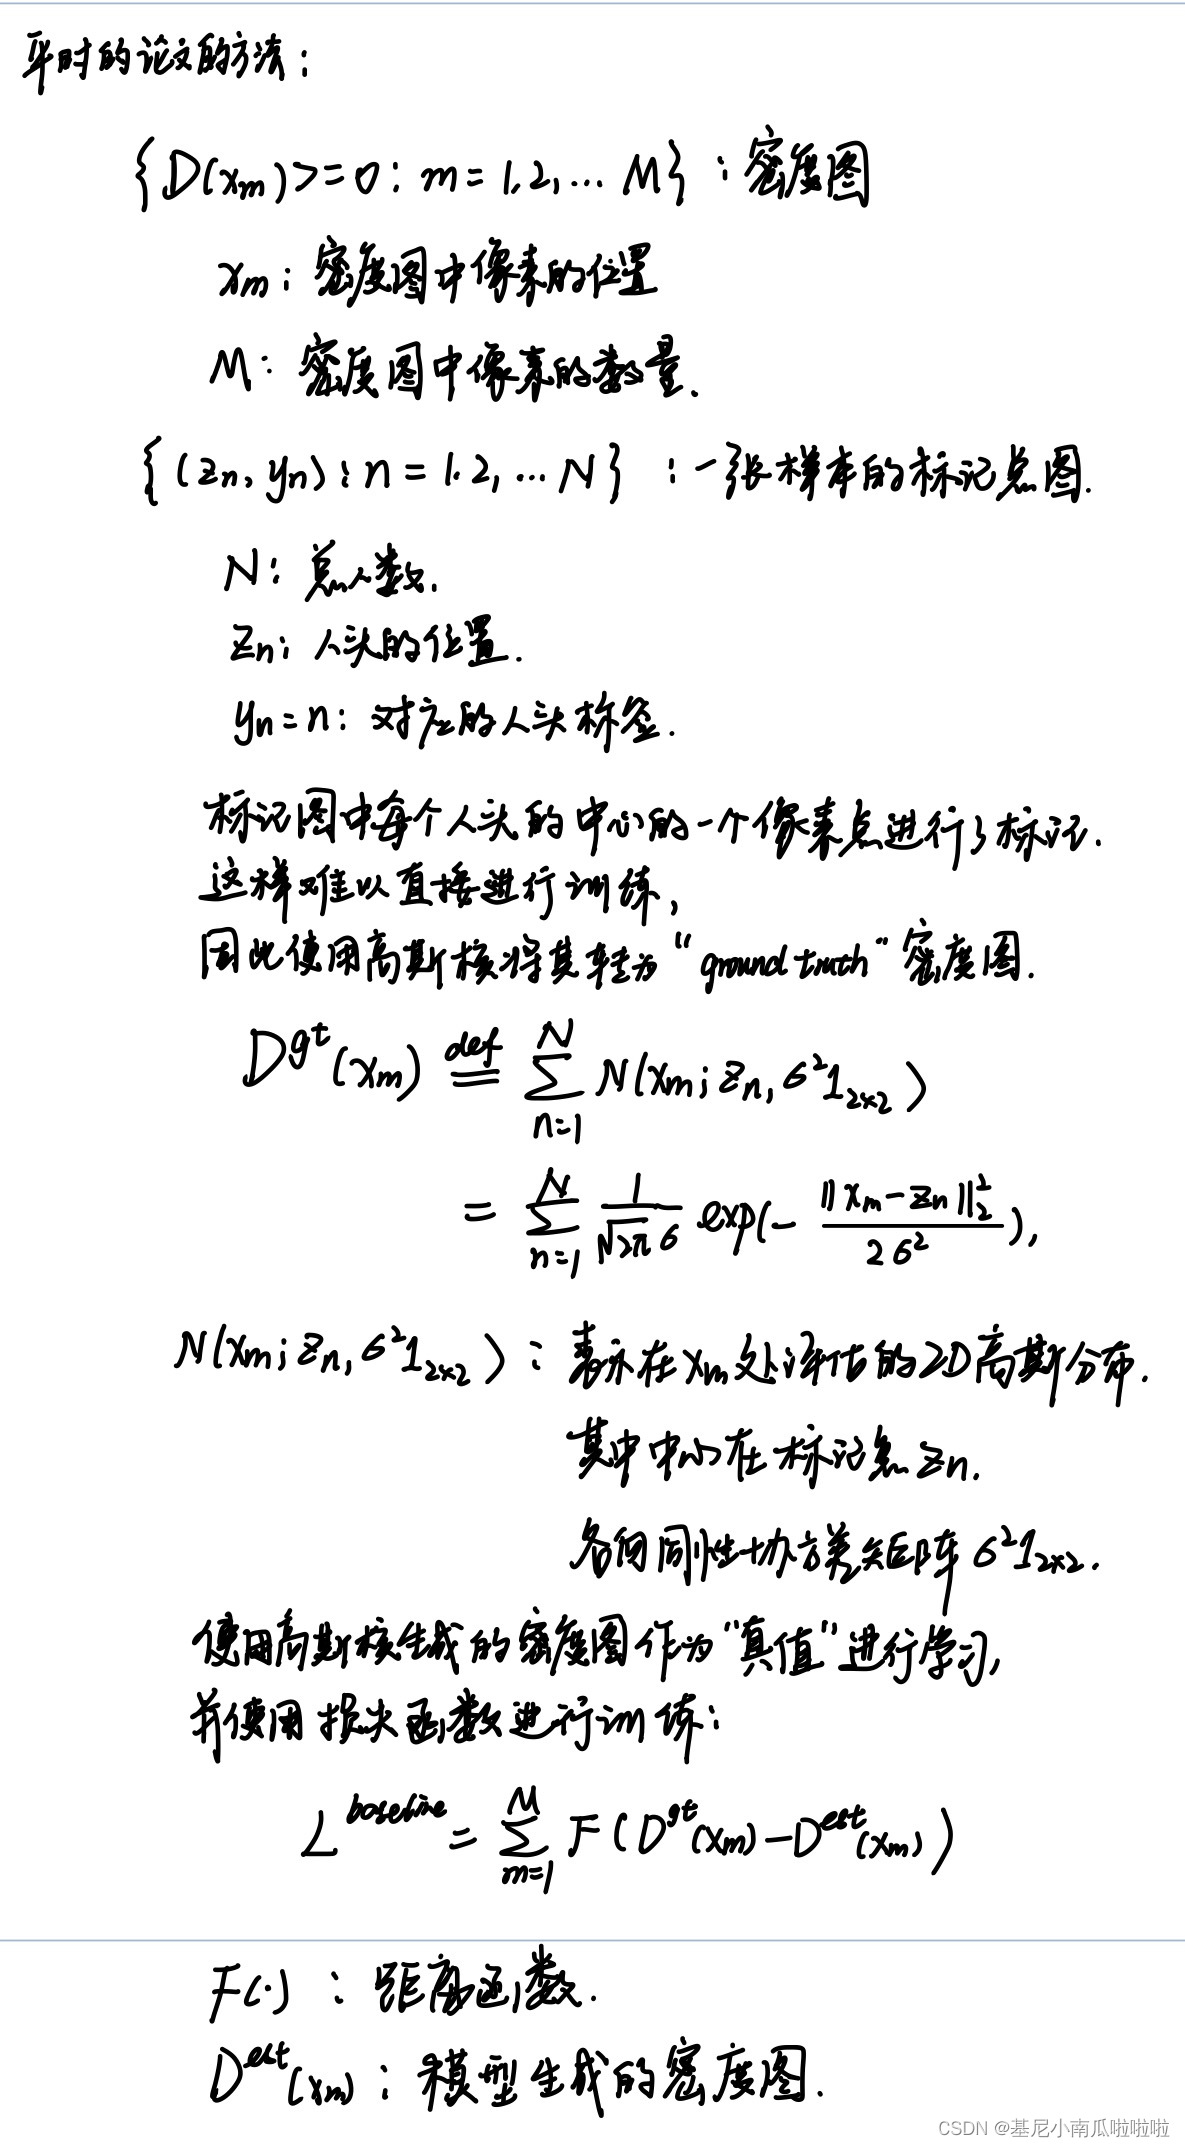 平时的论文的方法：
{D(xₘ)>=0: m=1,2,... M} ：密度图
xₘ：密度图中像素的位置
M：密度图中像素的数量.
{(zₙ, yₙ): n=1.2,... N} ：一张样本的标记点图.
N：总人数.
zₙ：人头的位置.
yₙ=n：对应的人头标签.
标记图中每个人头的中心的一个像素点进行了标记.
这样难以直接进行训练,
因此使用高斯核将其转为“ground truth”密度图.
D^{gt}(xₘ) \stackrel{def}{=} \sum_{n=1}^{N} N(xₘ; zₙ, σ²1_{2×2})
= \sum_{n=1}^{N} \frac{1}{\sqrt{2π}σ} exp(-\frac{||xₘ-zₙ||_2^2}{2σ²}),
N(xₘ; zₙ, σ²1_{2×2})：表示在xₘ处评估的2D高斯分布.
其中中心在标记点zₙ.
各向同性协方差矩阵σ²1_{2×2}.
使用高斯核生成的密度图作为“真值”进行学习,
并使用损失函数进行训练：
L^{baseline} = \sum_{m=1}^{M} F(D^{gt}(xₘ)-D^{est}(xₘ))
F(·)：距离函数.
D^{est}(xₘ)：模型生成的密度图.
CSDN @基尼小南瓜啦啦啦